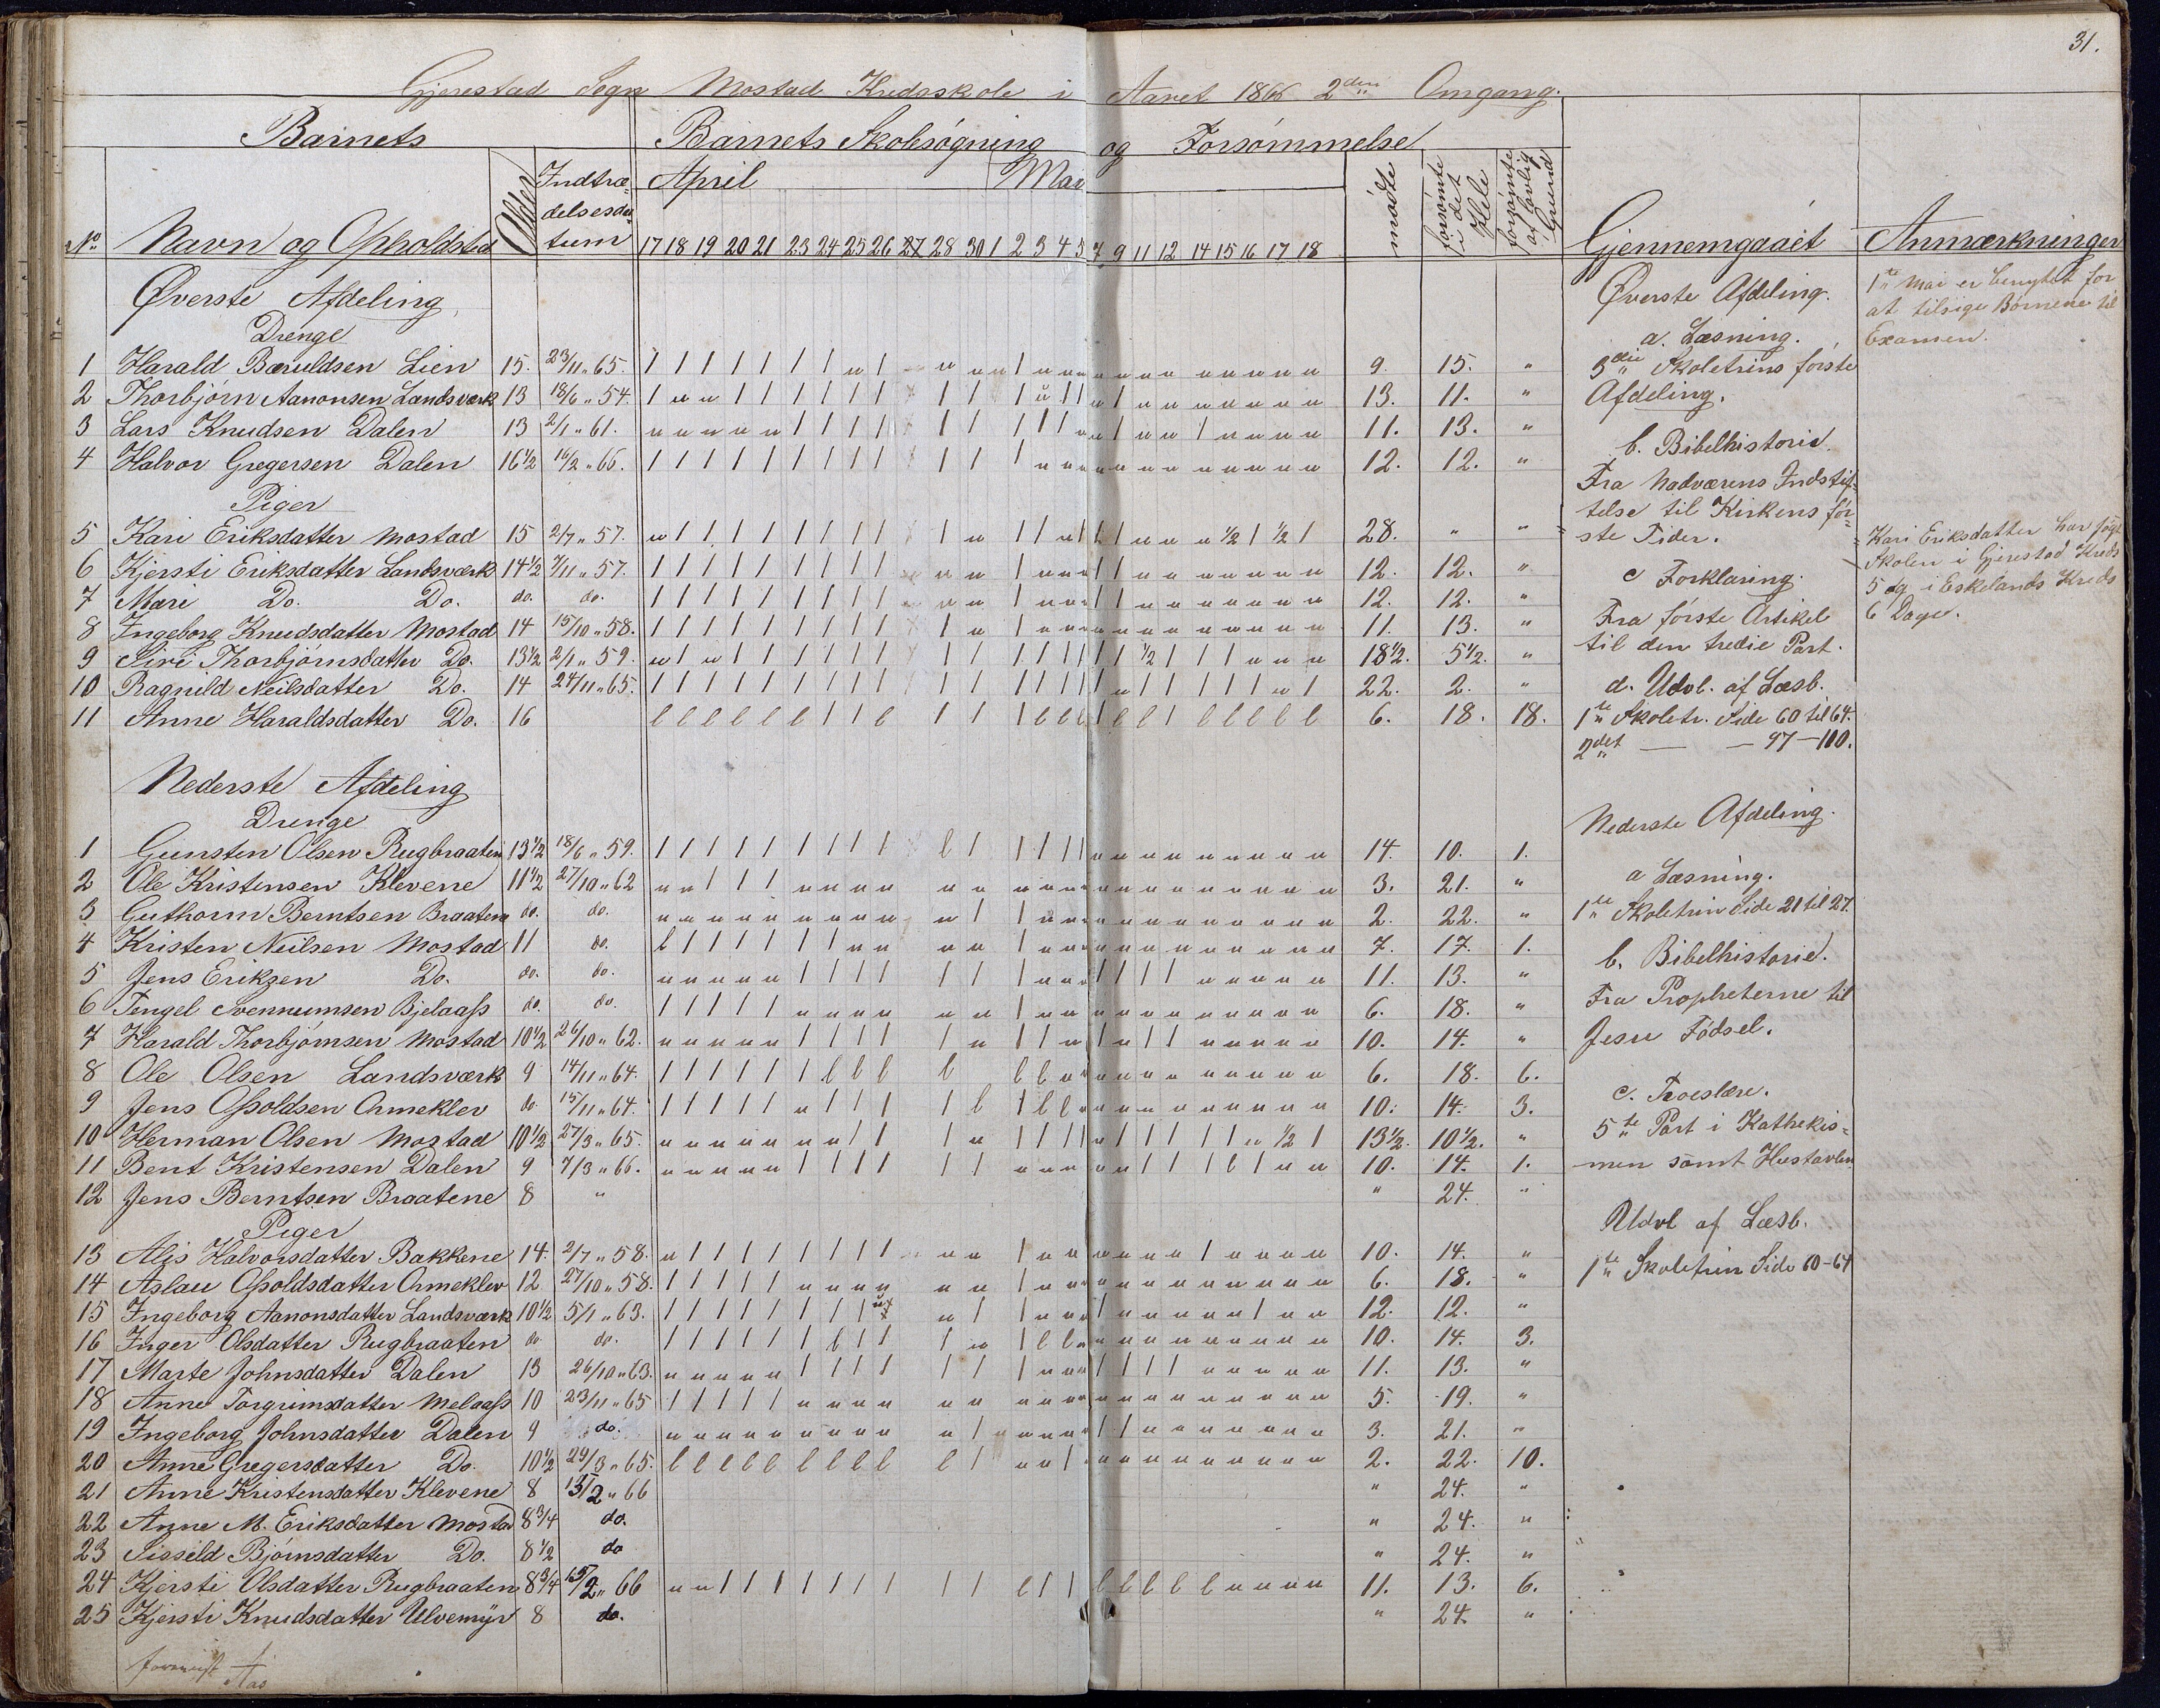 31.
Gjerestad Sogn Mostad Kredsskole i Aaret 1866 2den Omgang.
Barnets Barnets Skolesøgning og Forsømmelse
No Navn og Opholdsted Alder Indtrædelsesdatum April Mai mødte forsømte i det Hele forsømte af lovlig Grund Gjennemgaaet Anmærkninger
17 18 19 20 21 23 24 25 26 27 28 30 1 2 3 4 5 7 9 11 12 14 15 16 17 18
Øverste Afdeling
Drenge
1 Harald Baruldsen Lien 15. 23/11 „ 65. 9. 15. „
2 Thorbjørn Aanonsen Landsværk 13 18/6 „ 54. 13. 11. „
3 Lars Knudsen Dalen 13 2/1 „ 61. 11. 13. „
4 Halvor Gregersen Dalen 16½ 16/2 „ 66. 12. 12. „
Piger
5 Kari Eriksdatter Mostad 15 2/7 „ 57. 28. „ „
6 Kjersti Eriksdatter Landsværk 14½ 7/11 „ 57. 12. 12. „
7 Mari Do. Do. do. do. 12. 12. „
8 Ingeborg Knudsdatter Mostad 14 15/10 „ 58. 11. 13. „
9 Siri Thorbjørnsdatter Do. 13½ 2/1 „ 59. 18½. 5½. „
10 Ragnild Neilsdatter Do. 14 24/11 „ 65. 22. 2. „
11 Anne Haraldsdatter Do. 16 6. 18. 18.
Nederste Afdeling
Drenge
1 Gunsten Olsen Rugbraaten 13½ 18/6 „ 59. 14. 10. 1.
2 Ole Kristensen Klevene 11½ 27/10 „ 62 3. 21. „
3 Guthorm Berntsen Braatene do. do. 2. 22. „
4 Kristen Neilsen Mostad 11 do. 7. 17. 1.
5 Jens Eriksen Do. do. do. 11. 13. „
6 Tengel Svennumsen Bjelaass do. do. 6. 18. „
7 Harald Thorbjørnsen Mostad 10½ 26/10 „ 62. 10. 14. „
8 Ole Olsen Landsværk 9 14/11 „ 64. 6. 18. 6.
9 Jens Ossoldsen Ormeklev do. 15/11 „ 64. 10. 14. 3.
10 Herman Olsen Mostad 10½ 27/3 „ 65. 13½. 10½. „
11 Bent Kristensen Dalen 9 7/3 „ 66. 10. 14. 1.
12 Jens Berntsen Braatene 8 „ „ 24. „
Piger
13 Alis Halvorsdatter Bakkene 14. 2/7 „ 58. 10. 14. „
14 Aslau Ossoldsdatter Ormeklev 12 27/10 „ 58. 6. 18. „
15 Ingeborg Aanonsdatter Landsværk 10½ 5/1 „ 63. 12. 12. „
16 Inger Olsdatter Rugbraaten do. do. 10. 14. 3.
17 Marte Johnsdatter Dalen 13 26/10 „ 63. 11. 13. „
18 Anne Torgrimsdatter Melaass 10 23/11 „ 65 5. 19. „
19 Ingeborg Johnsdatter Dalen 9 do. 3. 21. „
20 Anne Gregersdatter Do. 10½ 29/3 „ 65. 2. 22. 10.
21 Anne Kristensdatter Klevene 8 13/2 „ 66 „ 24. „
22 Anne M. Eriksdatter Mostad 8¾ do. „ 24. „
23 Sisseld Bjørnsdatter Do. 8½ do „ 24. „
24 Kjersti Olsdatter Rugbraaten 8¾ 15/2 „ 66 11. 13. 6.
25 Kjersti Knudsdatter Ulvemyr 8 do. „ 24. „
Aas
Øverste Afdeling.
a. Læsning.
3die Skoletrins første
Afdeling.
b. Bibelhistorie.
Fra Nadværens Indstif-
telse til Kirkens før-
ste Tider.
c Forklaring.
Fra første Artikel
til den tredie Part.
d. Udvl. af Læsb.
1te Skoletr. Side 60 til 64.
2det — — 97-100.
Nederste Afdeling.
a Læsning.
1te Skoletrin Side 21 til 27.
b. Bibelhistorie.
Fra Propheterne til
Jesu Fødsel.
c. Troeslære.
5te Part i Kathekis-
men samt Hustavlen
Udvl af Læsb.
1te Skoletrin Side 60-64
1te Mai er benyttet for
at tilsige Børnene til
Examen.
Kari Eriksdatter har søgt
Skolen i Gjerestad Kreds
5 og i Eskelands Kreds
6 Dage.